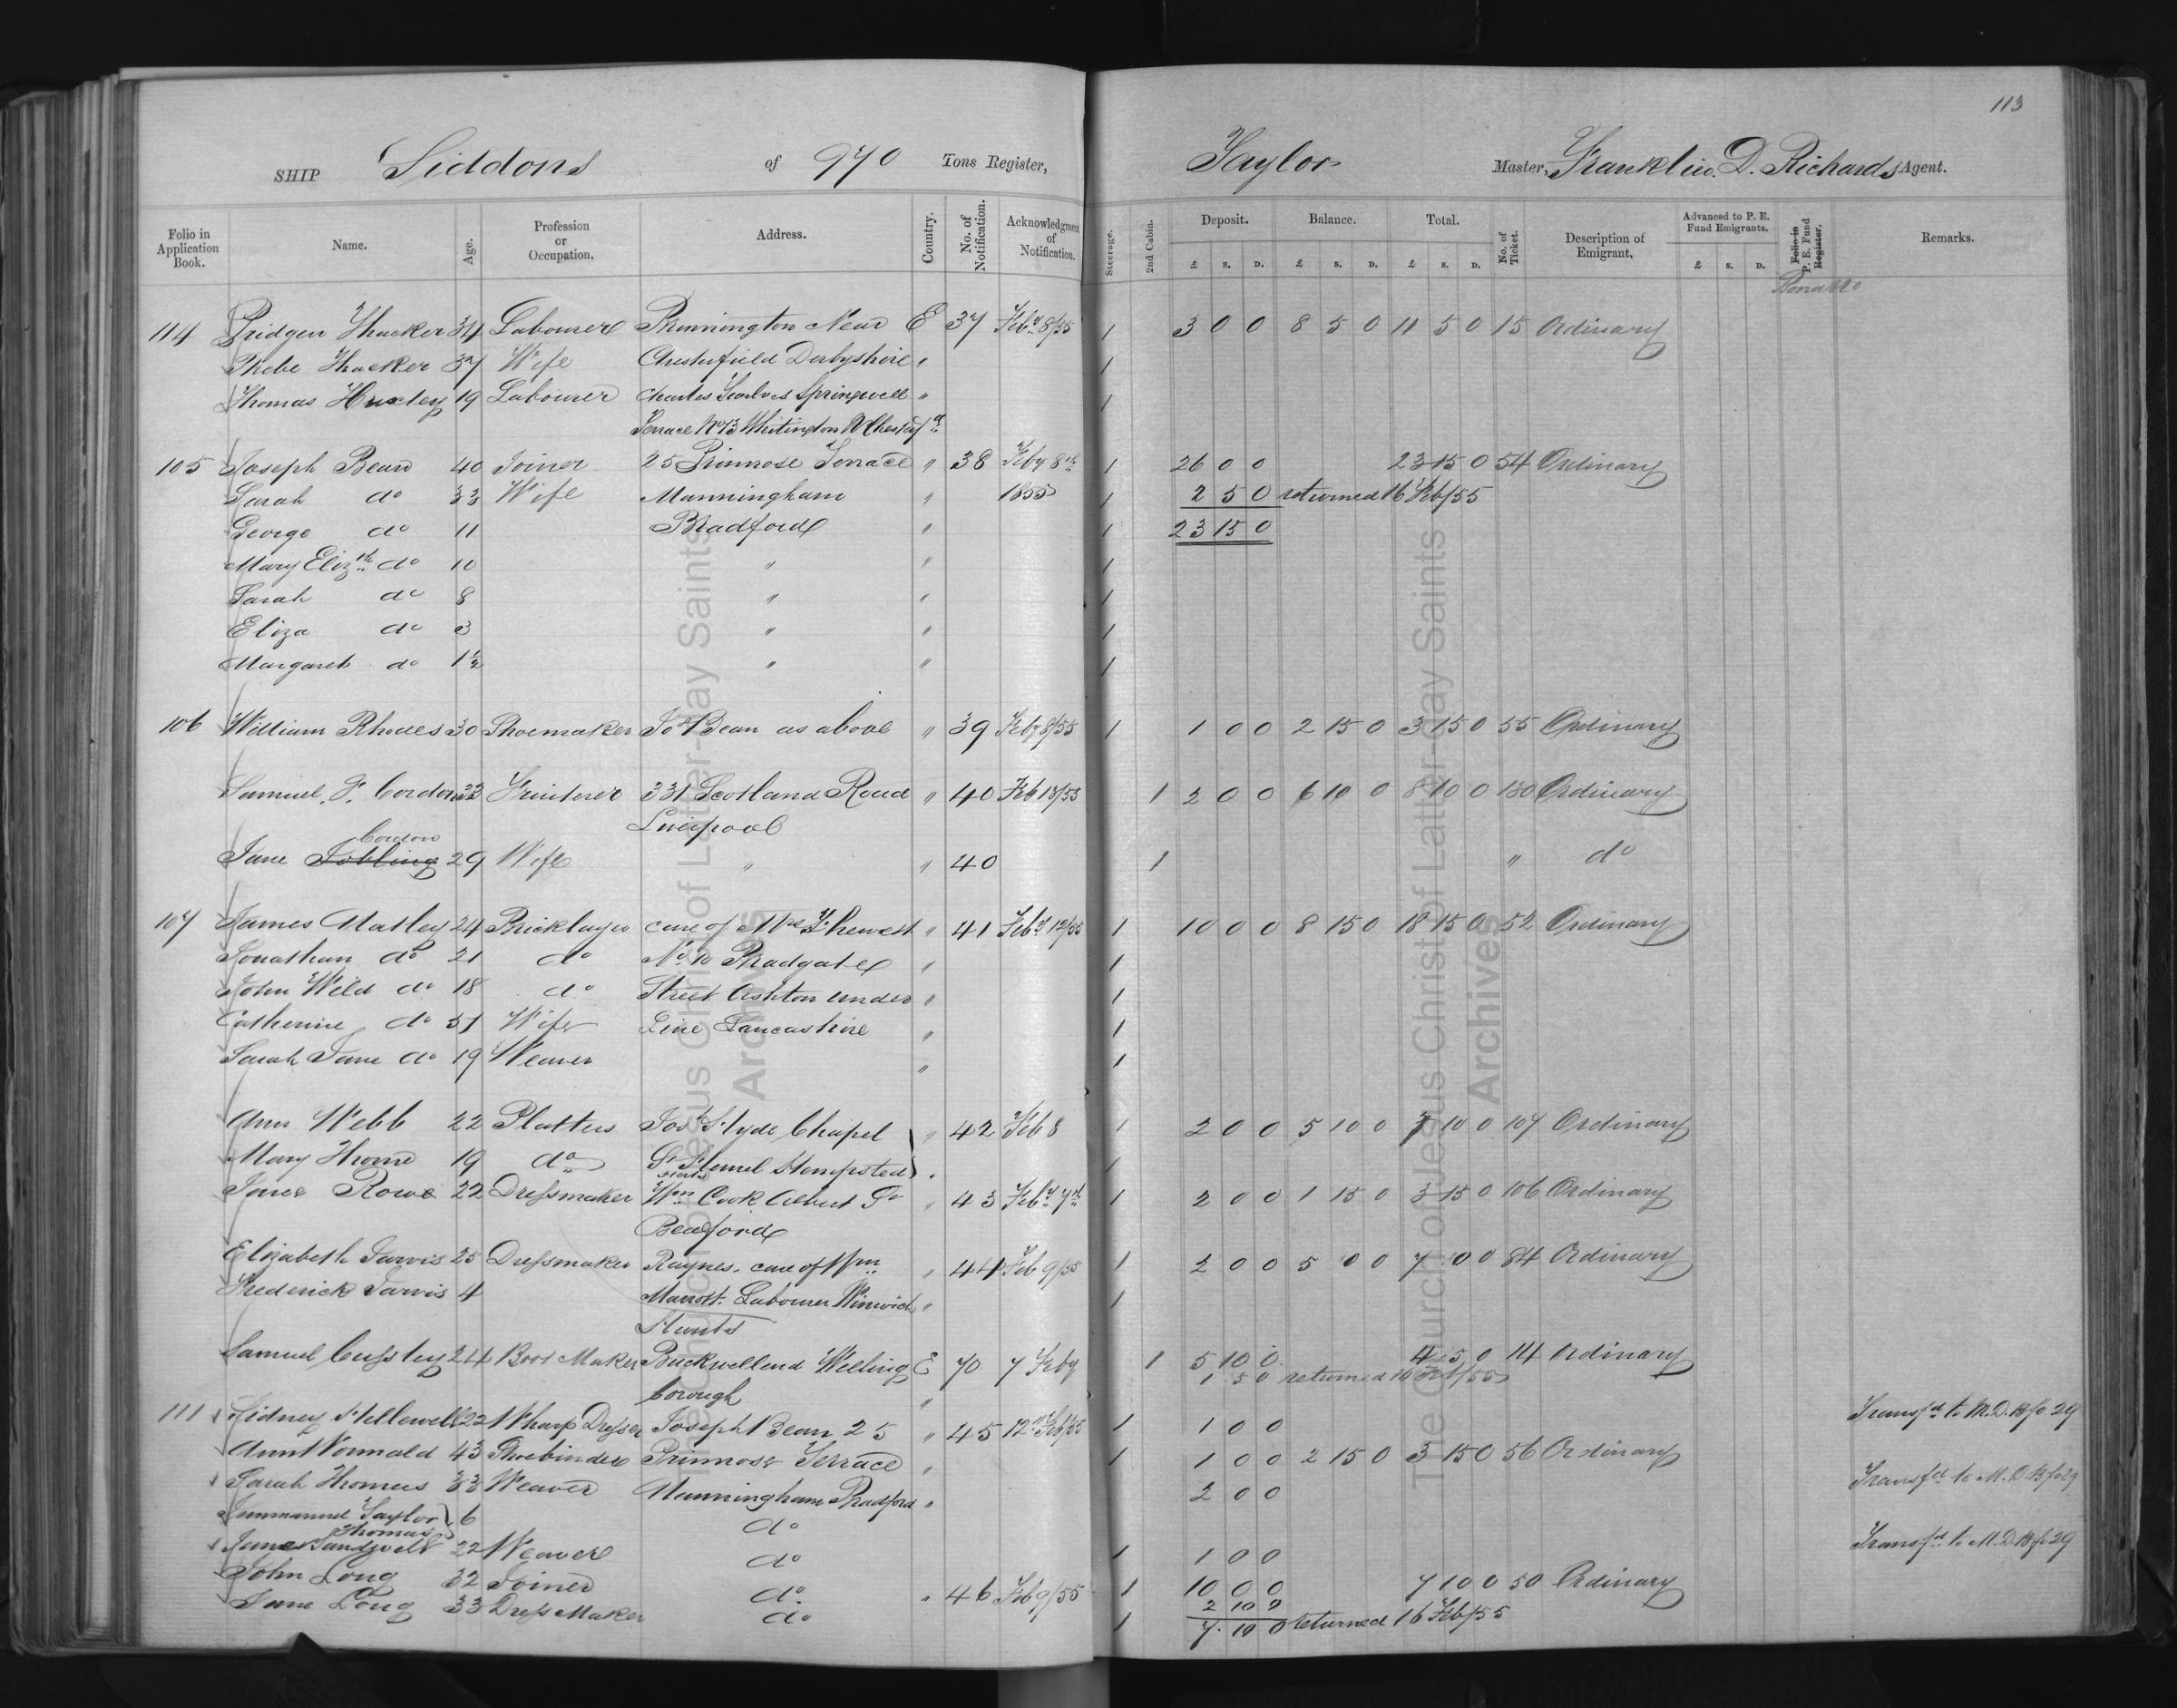 113
SHIP Siddons of 970 Tons Register, Taylor Master, Franklin. D. Richards Agent.
Folio in Application Book. Name. Age. Profession or Occupation. Address. Country. No. of Notification. Acknowledgment of Notification. Steerage. 2nd Cabin. Deposit. Balance. Total. No. of Ticket. Description of Emigrant. Advanced to P. E. Fund Emigrants. Folio in P. E. Fund Register. Remarks.
£ S. D. £ S. D. £ S. D. £ S. D.
114 Pridgen Thacker 34 Labourer Brinnington Near E 37 Feby 8/55 1 3 0 0 8 5 0 11 5 0 15 Ordinary
Phebe Thacker 37 Wife Chesterfield Derbyshire " 1
Thomas Huxley 19 Labourer Charles Springwell " 1
Terrace No 73 Whitington
105 Joseph Bean 40 Joiner 25 Primrose Terrace " 38 Feby 8th 1 26 0 0 23 15 0 54 Ordinary
Sarah do 33 Wife Manningham " 1855 1 2 5 0 returned 16 Feb/55
George do 11 Bradford " 1 23 15 0
Mary Elizth do 10 " " 1
Sarah do 8 " " 1
Eliza do 3 " " 1
Margaret do 1½ " " 1
106 William Rhodes 30 Shoemaker Jos Bean as above " 39 Feby 8/55 1 1 0 0 2 15 0 3 15 0 55 Ordinary
Samuel. F. Cordon 23 331 Scotland Road " 40 Feb 13/55 1 2 0 0 6 10 0 8 10 0 130 Ordinary
Liverpool
Cordon
Jane Jobling 29 Wife " " 40 1 " do
107 James Matley 24 Bricklayer care of Mrs " 41 Feby 12/55 1 10 0 0 8 15 0 18 15 0 52 Ordinary
Jonathan do 21 do No 10 Bradgate " 1
John Wild do 18 do Street Ashton under " 1
Catherine do 51 Wife Line Lancashire " 1
Sarah Jane do 19 Weaver " 1
Ann Webb 22 Platter Jos Hyde Chapel " 42 Feb 8 1 2 0 0 5 10 0 7 10 0 107 Ordinary
Mary Thorne 19 do St Hemel Hempsted " 1
Herts
Jane Rowe 22 Dressmaker Wm Cook Albert St " 43 Feby 7th 1 2 0 0 1 15 0 3 15 0 106 Ordinary
Bedford
Elizabeth Jarvis 25 Dressmaker Raynes. care of Wm " 44 Feb 9/55 1 2 0 0 5 0 0 7 0 0 84 Ordinary
Frederick Jarvis 4 Labourer Winwick " 1
Hunts
Samuel 24 Boot Maker Buckwellend Welling E 70 7 Feby 1 5 10 0 4 5 0 114 Ordinary
borough " 1 5 0 returned 16 Feb/55
111 Sidney Hellewell 22 Joseph Bean 25 " 45 12th Feb/55 1 1 0 0 Transfd to M.D.B fo 29
Ann Wormald 43 Shoebinder Primrose Terrace " 1 1 0 0 2 15 0 3 15 0 56 Ordinary
Sarah Thomas 33 Weaver Manningham Bradford " 2 0 0 Transfd to M.D.B fo 29
Immanuel Taylor 6 do
Thomas
Jane 22 Weaver do 1 1 0 0 Transfd to M.D.B fo 29
John Long 32 Joiner do " 46 Feb 9/55 1 10 0 0 7 10 0 50 Ordinary
Jane Long 33 Dress Maker do 1 2 10 0
7. 10 0 returned 16 Feb/55
The Church of Jesus Christ of Latter-day Saints
Archives
The Church of Jesus Christ of Latter-day Saints
Archives